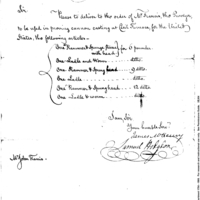 Sir
Please to deliver to the order of Mr. Francis, the Purveyor,
to be used in proving cannon, casting at Furnace, for the United
States, the following articles—
One Rammer & Sponge for 6 pounder
with head
One Ladle and Worm ditto
One Rammer & Spunghead 9 ditto
One Ladle ditto
One Rammer & Spunghead 12 ditto
One Ladle & worm ditto
I am, Sir
Your humble Serv
James McHenry
Samuel Hodgdon
Mr John Harris